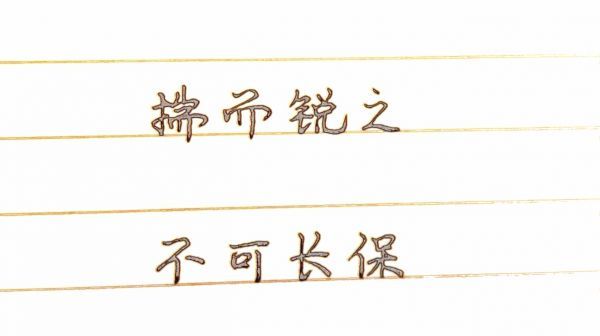 揣而锐之
不可长保